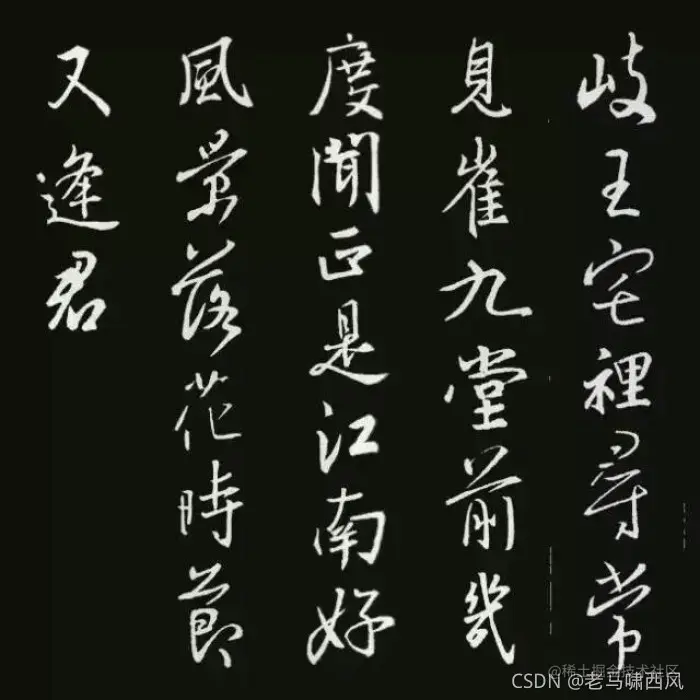 岐王宅裡尋常
見崔九堂前幾
度聞正是江南好
風景落花時節
又逢君
@稀土掘金技术社区
CSDN @老马啸西风